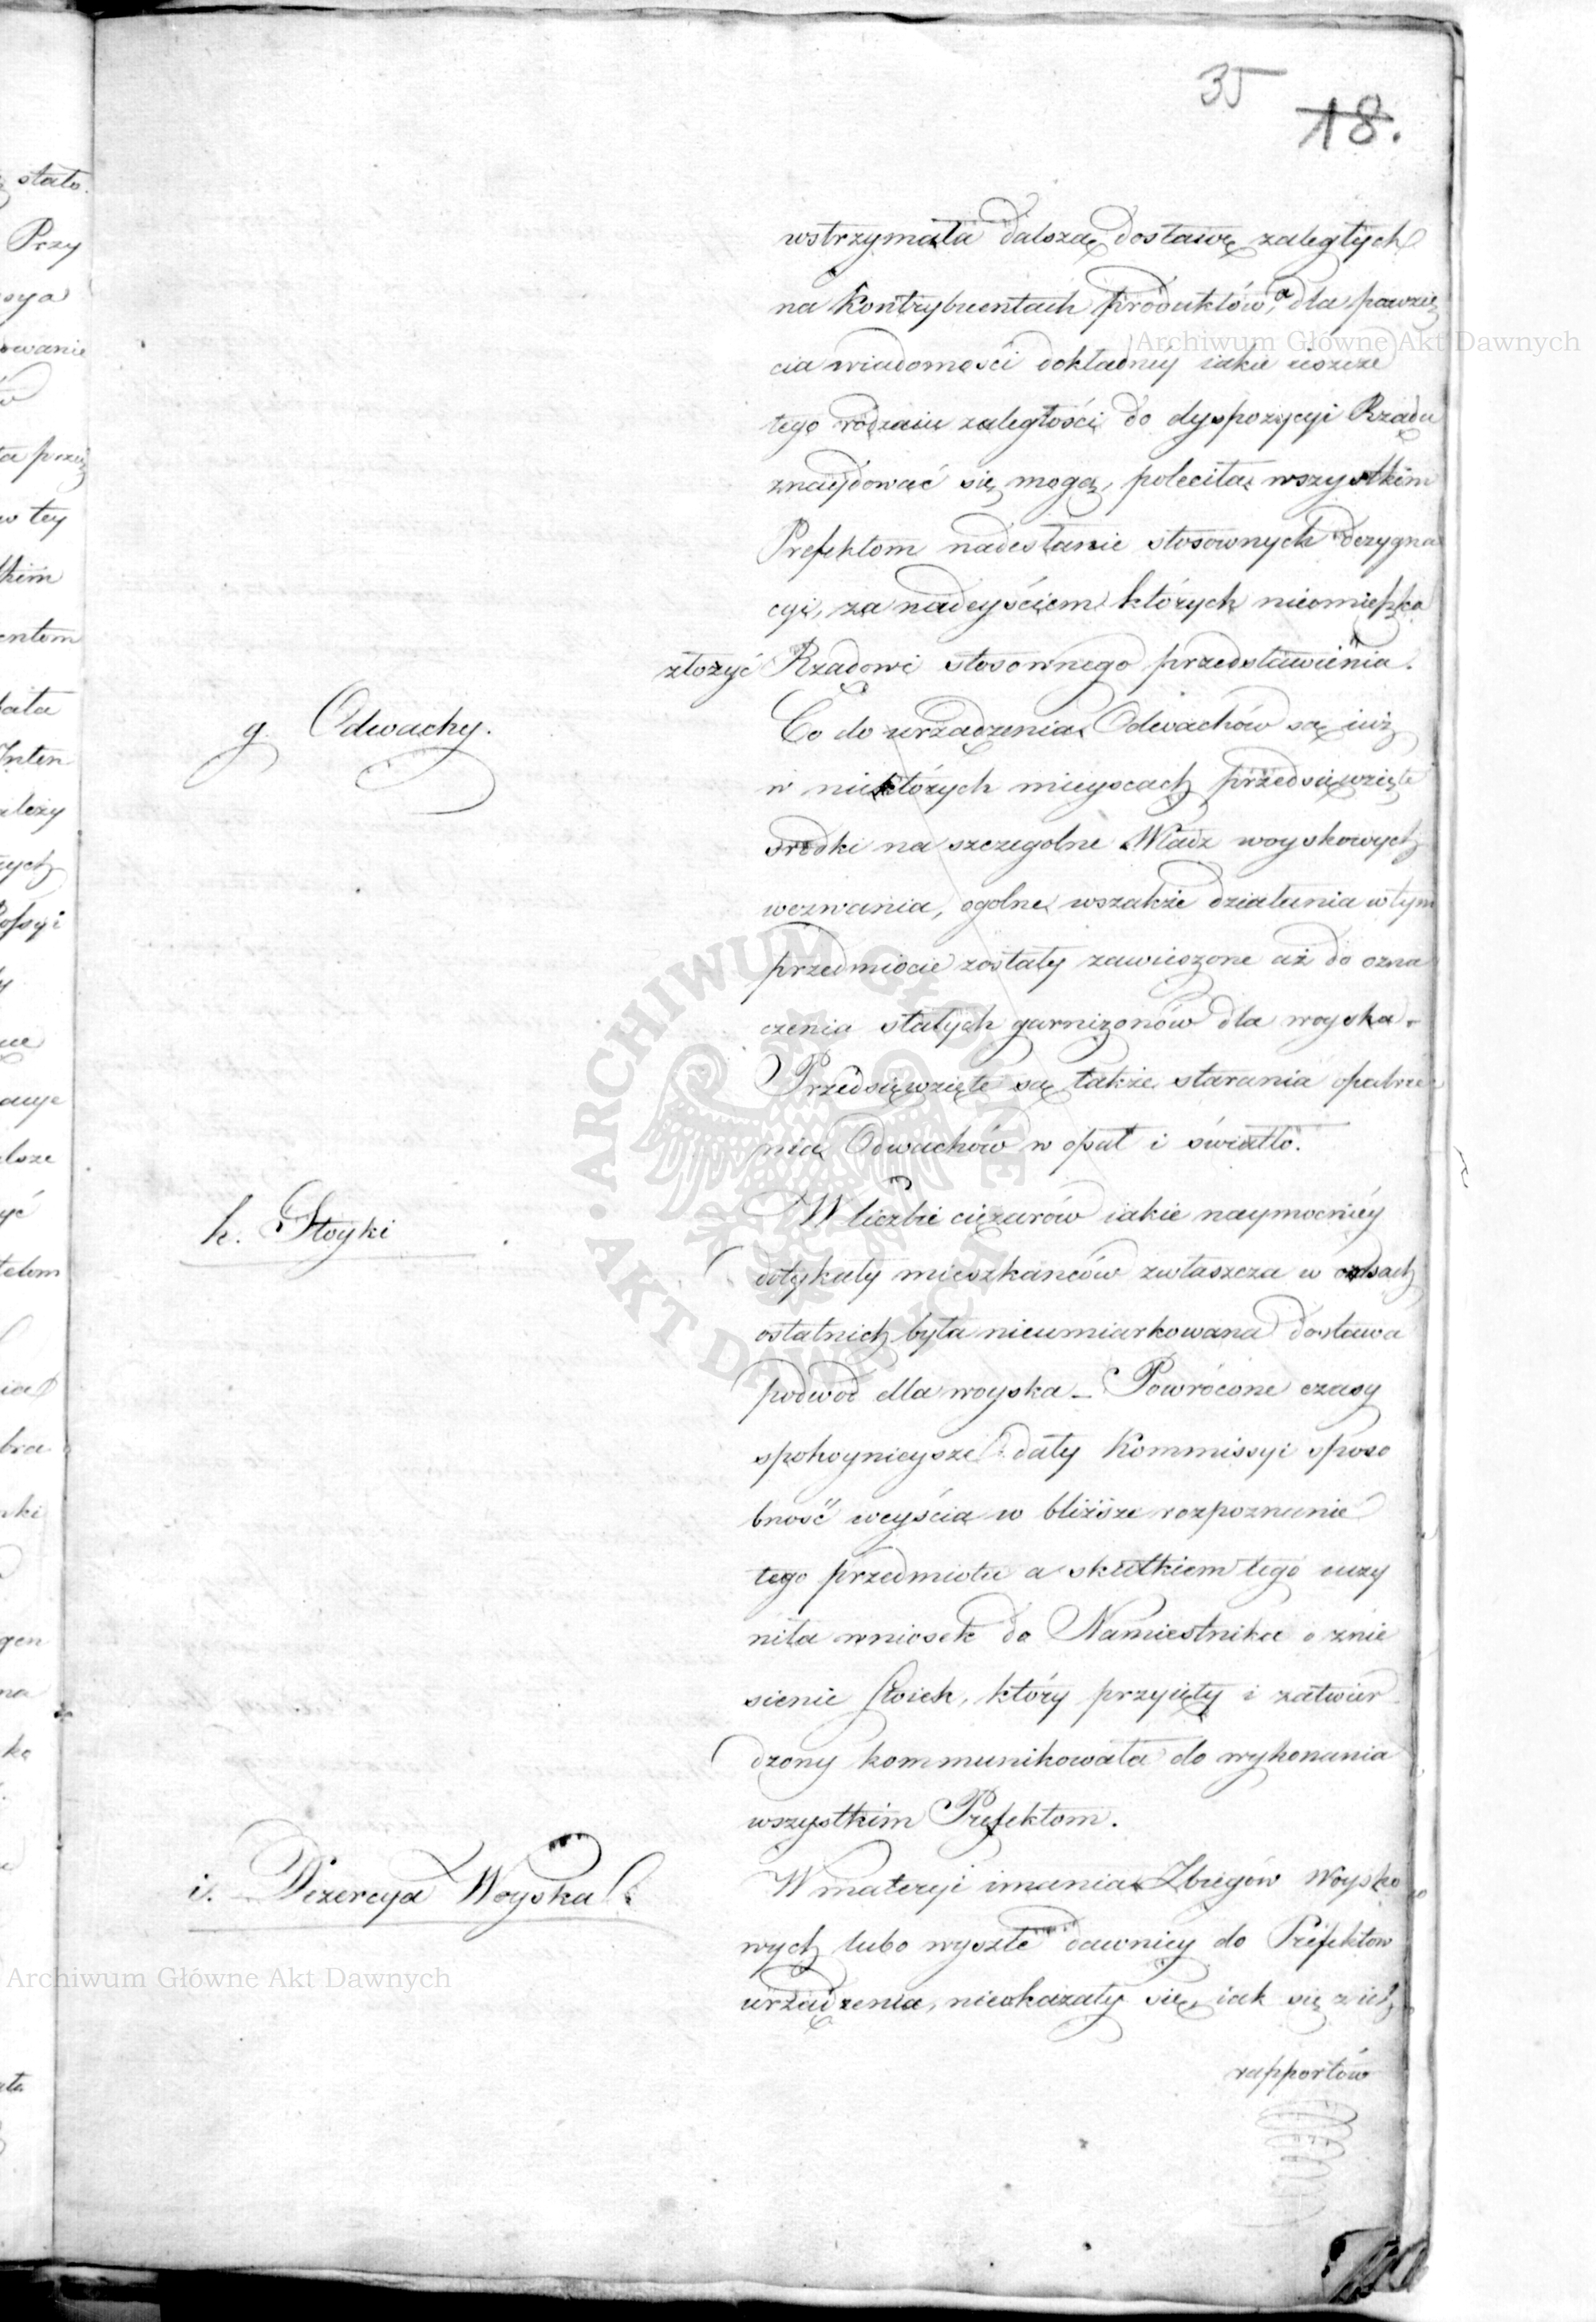 35
18.
wstrzymała dalszą dostawę zaległych
na Kontrybuentach produktów, a dla powzię
cia wiadomości dokładney iakie ieszcze
tego rodzaiu zaległości do dyspozycyi Rządu
znaydować się mogą, poleciła wszystkim
Prefektom nadesłanie stosownych dezygna
cyi, za nadeyściem których nieomieszka
złożyć Rządowi stosownego przedstawienia.
g. Odwachy.
Co do urządzenia Odwachów są iuż
w niektórych mieyscach przedsięwzięte
srodki na szczegolne Władz woyskowych
wezwania, ogolne wszakże działania w tym
przedmiocie zostały zawieszone aż do ozna
czenia stałych garnizonów dla woyska.
Przedsięwzięte są także starania opatrze
nia Odwachów w opał i światło.
h. Stoyki
W liczbie ciężarów iakie naymocniéy
dotykały mieszkańców zwłaszcza w czasach
ostatnich była nieumiarkowana dostawa
podwod dla woyska – Powrócone czasy
spokoynieysze dały Kommissyi sposo
bność weyścia w bliższe rozpoznanie
tego przedmiotu a skutkiem tego uczy
niła wniosek do Namiestnika o znie
sienie stoiek, który przyięty i zatwier
dzony kommunikowała do wykonania
wszystkim Prefektom.
i. Dezercya Woyska
W materyi imania Zbiegów Woysko
wych lubo wyszłe dawniey do Prefektow
urządzenia, nieokazały się, iak się z ich
rapportów
Archiwum Główne Akt Dawnych
Archiwum Główne Akt Dawnych
ARCHIWUM GŁÓWNE
AKT DAWNYCH
stało
Przy
owanie
w tey
entom
Inten